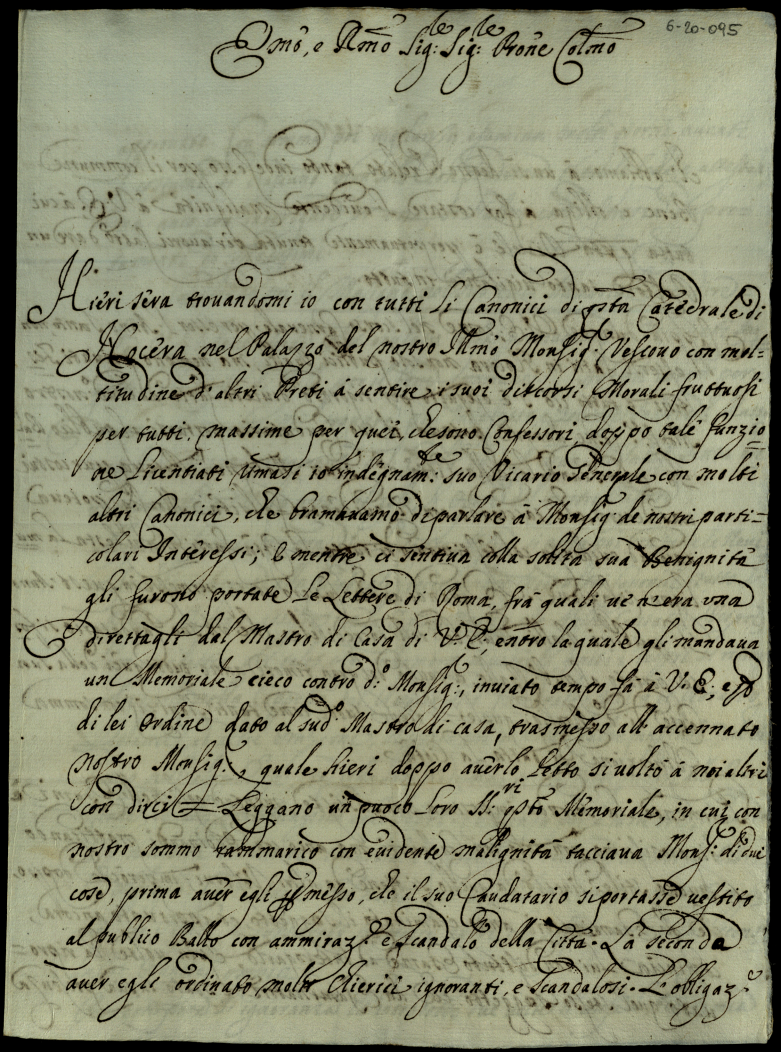 6-20-095
Emo, e Rmo Sig:le Sig:le Prone Colmo
Hieri sera trovandomi io con tutti li Canonici di qsta Catedrale di
Nocera nel Palazzo del nostro Illmo Monsig: Vescovo con mol=
titudine d'altri Preti á sentire i suoi discorsi Morali fruttuosi
per tutti, massime per quei, che sono Confessori, doppo tale funzio=
ne licentiati rimasi io indegnam:te suo Vicario Generale con molti
altri Canonici, che bramavamo di parlare á Monsig: de nostri parti=
colari Interessi; e mentre ci sentiva colla solita sua Benignitá
gli furono portate le lettere di Roma, frá quali ve n'era una
direttagli dal Mastro di Casa di V. E., entro la quale gli mandava
un Memoriale cieco contro d:o Monsig:, inviato tempo fá á V. E; e p
di lei ordine dato al sud:o Mastro di casa, trasmesso all' accennato
nostro Monsig:, quale hieri doppo averlo letto si voltó á noi altri
con dirci = Leggano un puoco loro SS:ri qsto Memoriale, in cui con
nostro sommo rammarico con evidente malignitá tacciava Mons: di due
cose, prima aver egli pmesso, che il suo Caudatario si portasse vestito
al publico Ballo con ammiraz:e e scandalo della Cittá. La seconda
aver egli ordinato molti Chierici ignoranti, e scandalosi. L'obligaz:e